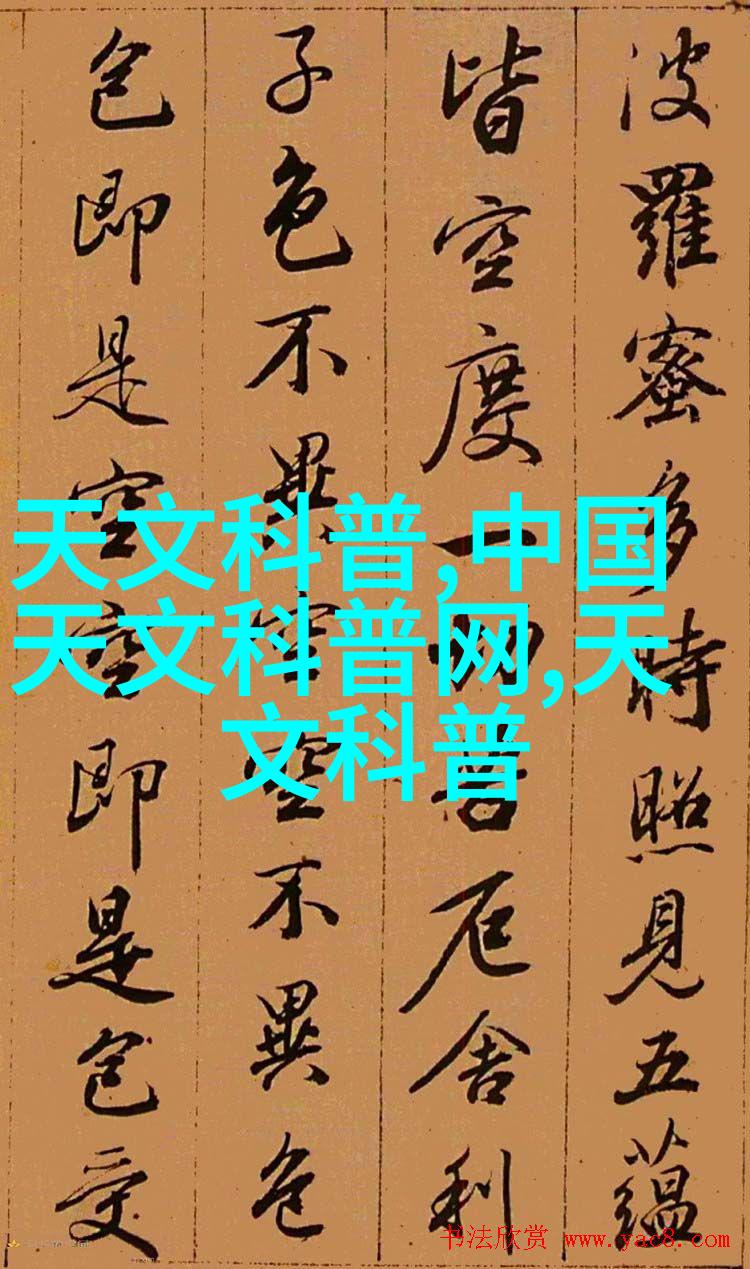 波羅蜜多時照見五蘊
皆空度一切苦厄舍利
子色不異空空不異色
色即是空空即是色受
天文科普,中国
天文科普网,天
文科普
书法欣赏 www.yac8.com